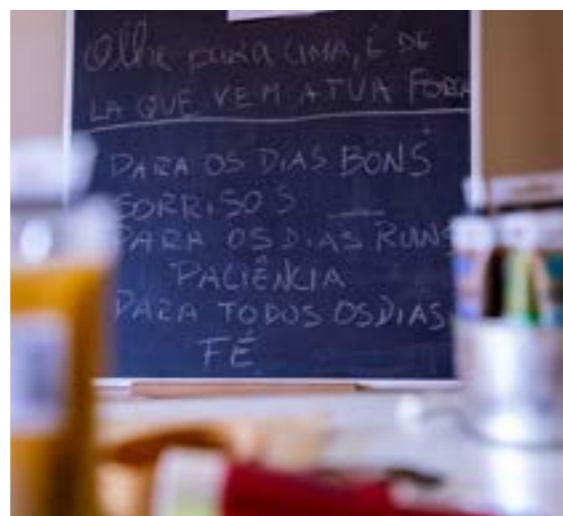 Olhe para CIMA, É DE
LA QUE VEM A TUA FORÇA
PARA OS DIAS BONS
SORRISOS
PARA OS DIAS RUINS
PACIÊNCIA
PARA TODOS OS DIAS
FÉ